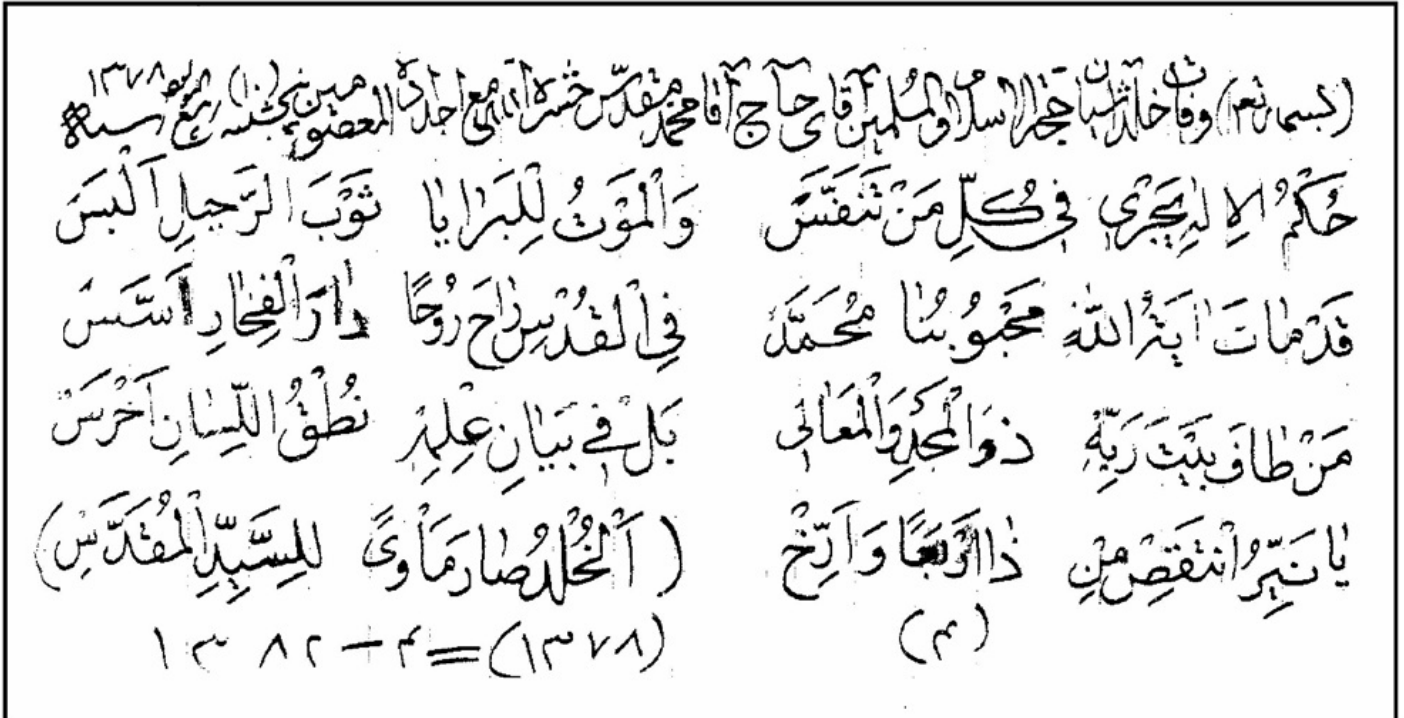 (بسمه تعالی) وفات خلد آشیان حجة الاسلام والمسلمین آقای حاج آقا محمد مقدس حشره الله مع اجداده المعصومین پنجشنبه (۱۰) ربیع ۱۳۷۸
حُكْمُ الاِلٰهِ یَجْرٰی فی كُلِّ مَنْ تَنَفَّسَ وَالْمَوْتُ لِلْبَرٰایٰا ثَوْبَ الرَّحیلِ اَلْبَسَ
قَدْمٰاتَ اٰیَةُ اللّٰهِ مَحْبُوبُنٰا مُحَمَّدْ فِی الْقُدْسِ رٰاحَ رُوحًا دٰارَ الْفِخٰارِ اَسَّسَ
مَنْ طٰافَ بَیْتَ رَبِّهٖ ذوَالْمَجْدِ وَالْمَعٰالی بَلْ فی بَیٰانِ عِلْمِهٖ نُطْقُ اللِّسٰانِ اَخْرَسْ
یٰا نَیِّرُ انْتَقِصْ مِنْ ذٰا اَرْبَعًا وَاَرِّخْ (اَلْخُلْدُ صٰارَ مَأْویً لِلسَّیِّدِ الْمُقَدَّسِ)
(۴) (۱۳۷۸)=۴−۱۳۸۲